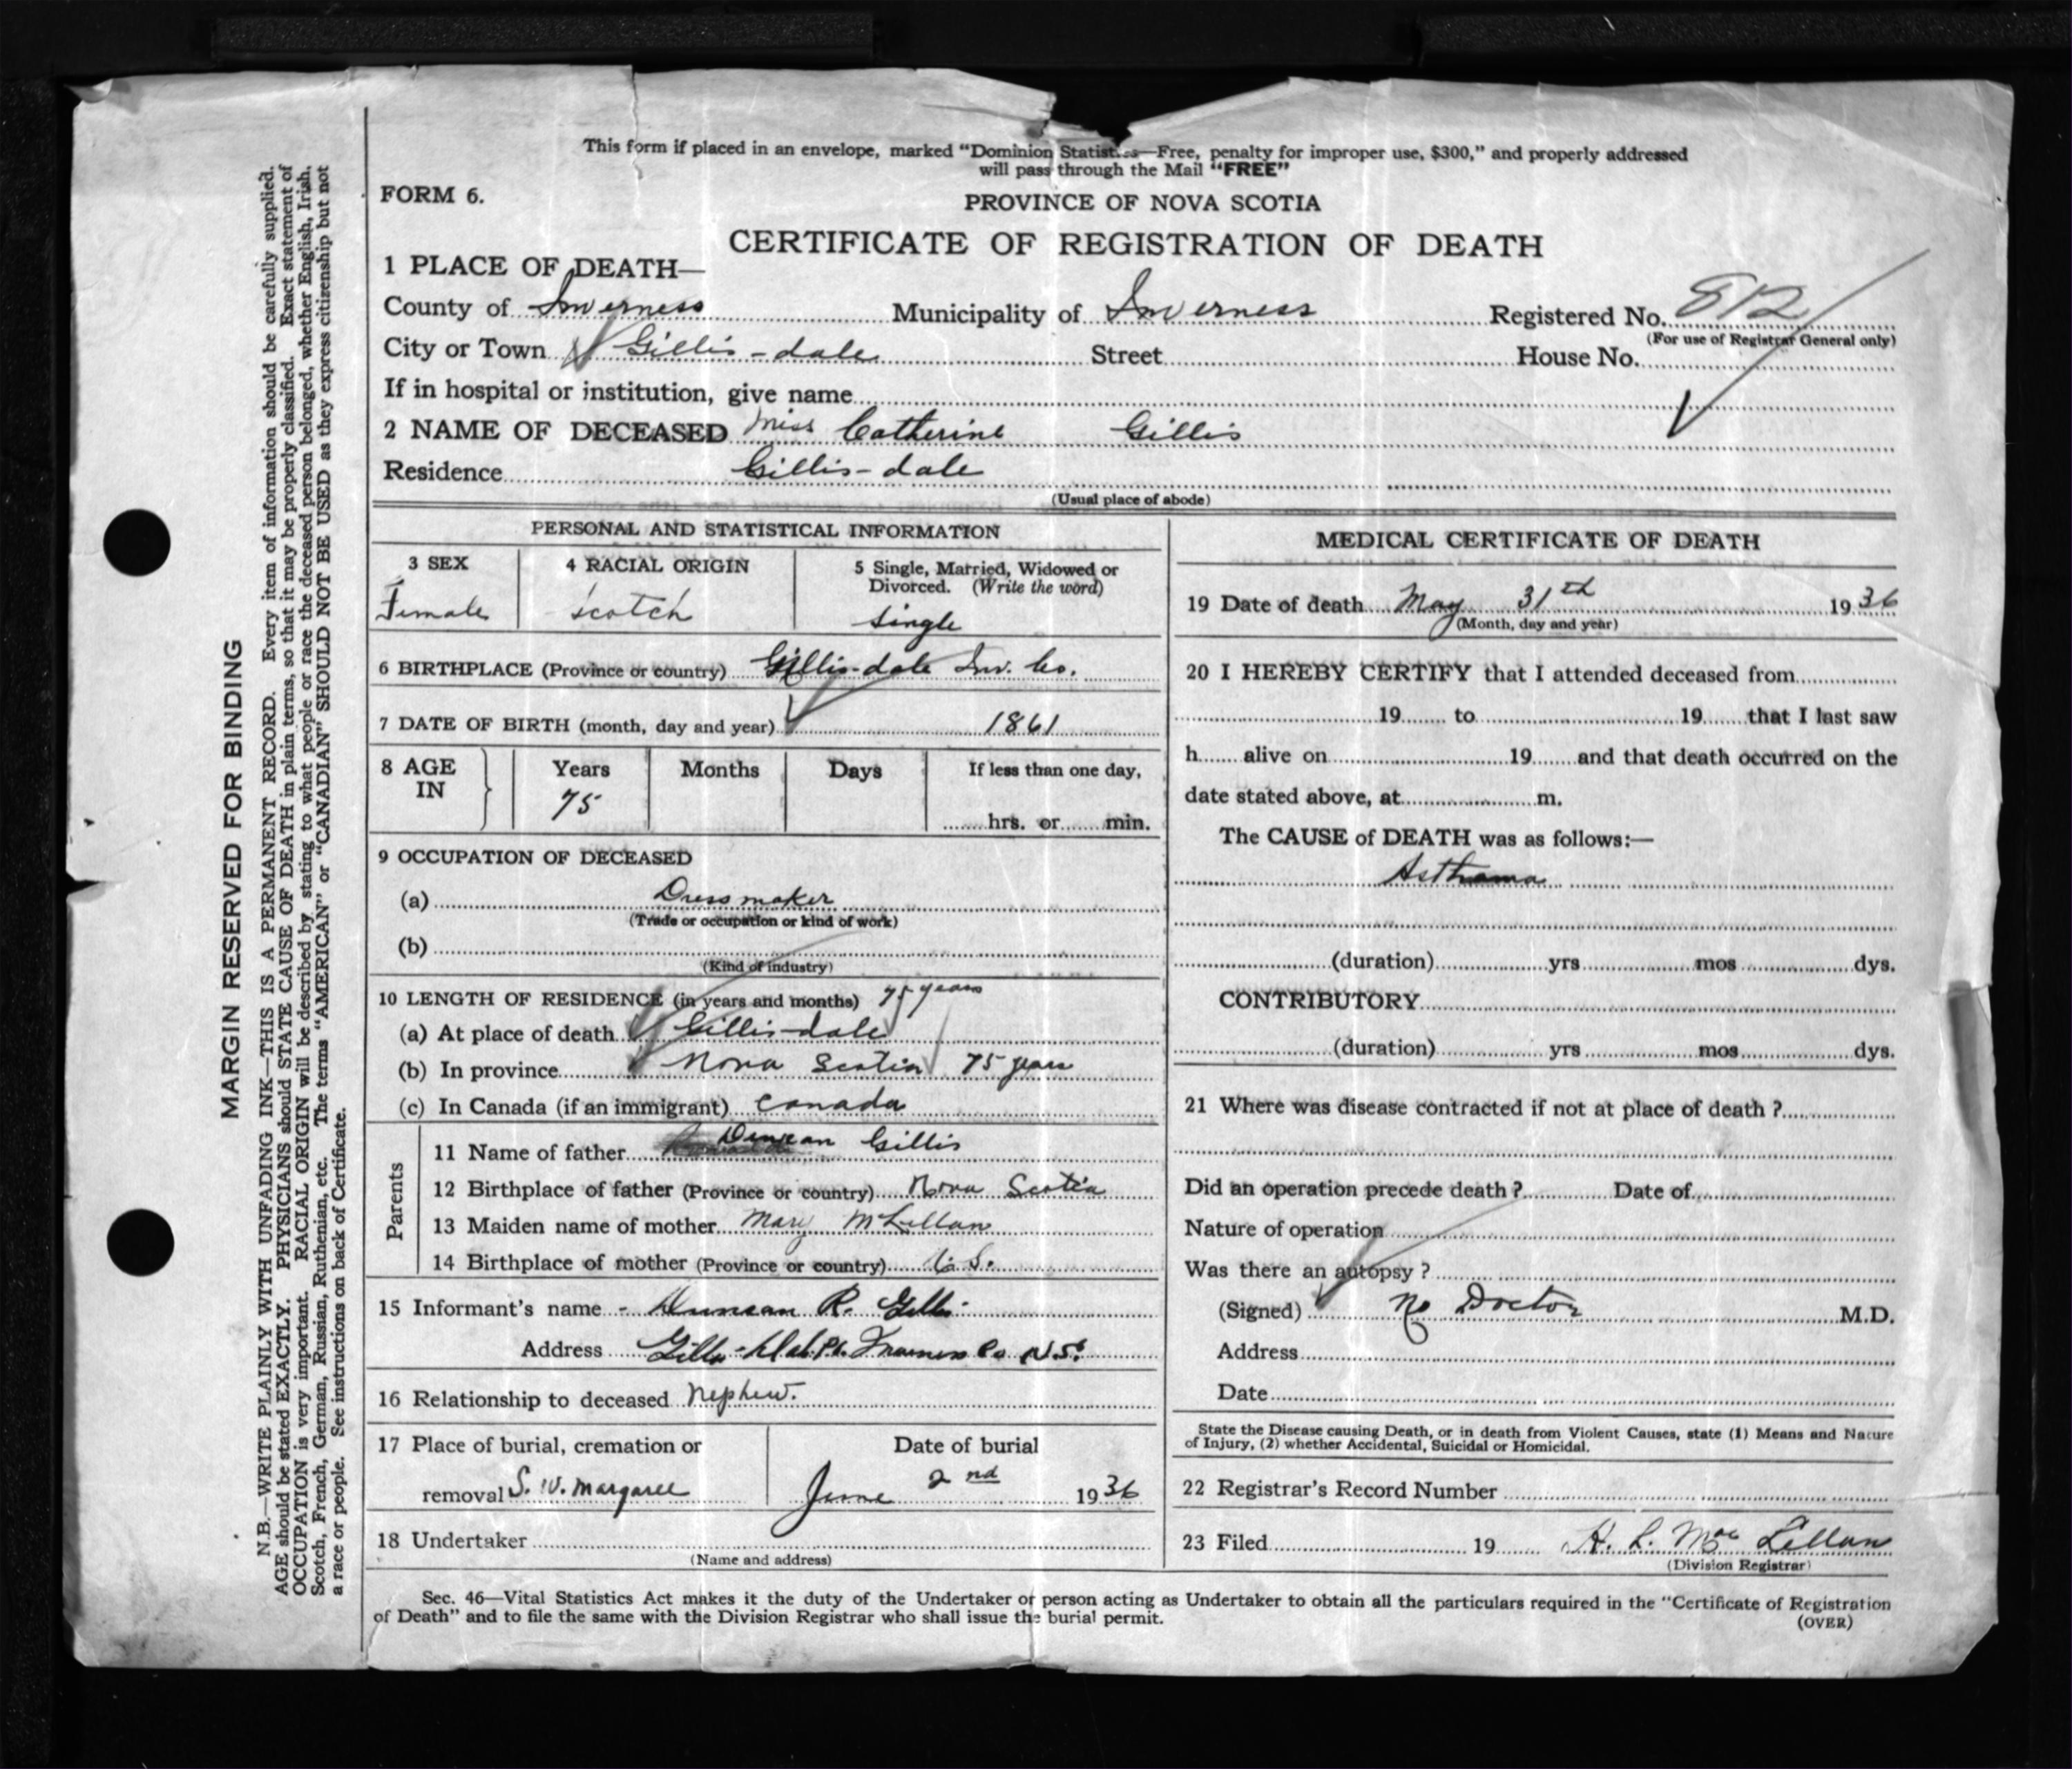 This form if placed in an envelope, marked "Dominion Statist...s—Free, penalty for improper use, $300," and properly addressed
will pass through the Mail "FREE"
FORM 6.
PROVINCE OF NOVA SCOTIA
CERTIFICATE OF REGISTRATION OF DEATH
1 PLACE OF DEATH—
County of Inverness Municipality of Inverness Registered No. 812
(For use of Registrar General only)
City or Town Gillis-dale Street House No.
If in hospital or institution, give name
2 NAME OF DECEASED Miss Catherine Gillis
Residence Gillis-dale
(Usual place of abode)
PERSONAL AND STATISTICAL INFORMATION
3 SEX 4 RACIAL ORIGIN 5 Single, Married, Widowed or
Divorced. (Write the word)
Female Scotch Single
6 BIRTHPLACE (Province or country) Gillis-dale Inv. Co.
7 DATE OF BIRTH (month, day and year) 1861
8 AGE IN Years Months Days If less than one day,
75 hrs. or min.
9 OCCUPATION OF DECEASED
(a) Dressmaker
(Trade or occupation or kind of work)
(b)
(Kind of industry)
10 LENGTH OF RESIDENCE (in years and months) 75 years
(a) At place of death Gillis-dale
(b) In province Nova Scotia 75 years
(c) In Canada (if an immigrant) Canada
Parents
11 Name of father Duncan Gillis
12 Birthplace of father (Province or country) Nova Scotia
13 Maiden name of mother Mary McLellan
14 Birthplace of mother (Province or country) S.
15 Informant's name - Duncan R. Gillis
Address Gillis-Dale Inverness Co N.S.
16 Relationship to deceased Nephew.
17 Place of burial, cremation or Date of burial
removal S. W. Margaree June 2nd 1936
18 Undertaker
(Name and address)
MEDICAL CERTIFICATE OF DEATH
19 Date of death May 31th 1936
(Month, day and year)
20 I HEREBY CERTIFY that I attended deceased from
19 to 19 that I last saw
h alive on 19 and that death occurred on the
date stated above, at m.
The CAUSE of DEATH was as follows:—
Asthama
(duration) yrs mos dys.
CONTRIBUTORY
(duration) yrs mos dys.
21 Where was disease contracted if not at place of death ?
Did an operation precede death ? Date of
Nature of operation
Was there an autopsy ?
(Signed) No Doctor M.D.
Address
Date
State the Disease causing Death, or in death from Violent Causes, state (1) Means and Nature
of Injury, (2) whether Accidental, Suicidal or Homicidal.
22 Registrar's Record Number
23 Filed 19 H. L. MacLellan
(Division Registrar)
Sec. 46—Vital Statistics Act makes it the duty of the Undertaker or person acting as Undertaker to obtain all the particulars required in the "Certificate of Registration
of Death" and to file the same with the Division Registrar who shall issue the burial permit.
(OVER)
MARGIN RESERVED FOR BINDING
N.B.—WRITE PLAINLY WITH UNFADING INK—THIS IS A PERMANENT RECORD. Every item of information should be carefully supplied.
AGE should be stated EXACTLY. PHYSICIANS should STATE CAUSE OF DEATH in plain terms, so that it may be properly classified. Exact statement of
OCCUPATION is very important. RACIAL ORIGIN will be described by stating to what people or race the deceased person belonged, whether English, Irish,
Scotch, French, German, Russian, Ruthenian, etc. The terms "AMERICAN" or "CANADIAN" SHOULD NOT BE USED as they express citizenship but not
a race or people. See instructions on back of Certificate.